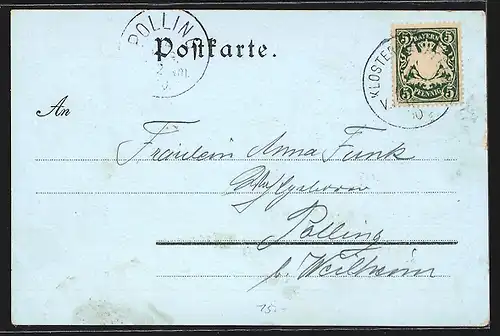 POLLING
Postkarte.
BAYERN
5 5
PFENNIG
KLOSTER
An
Fräulein Anna Funk
Wohlgeboren
Polling
b. Weilheim
15.-